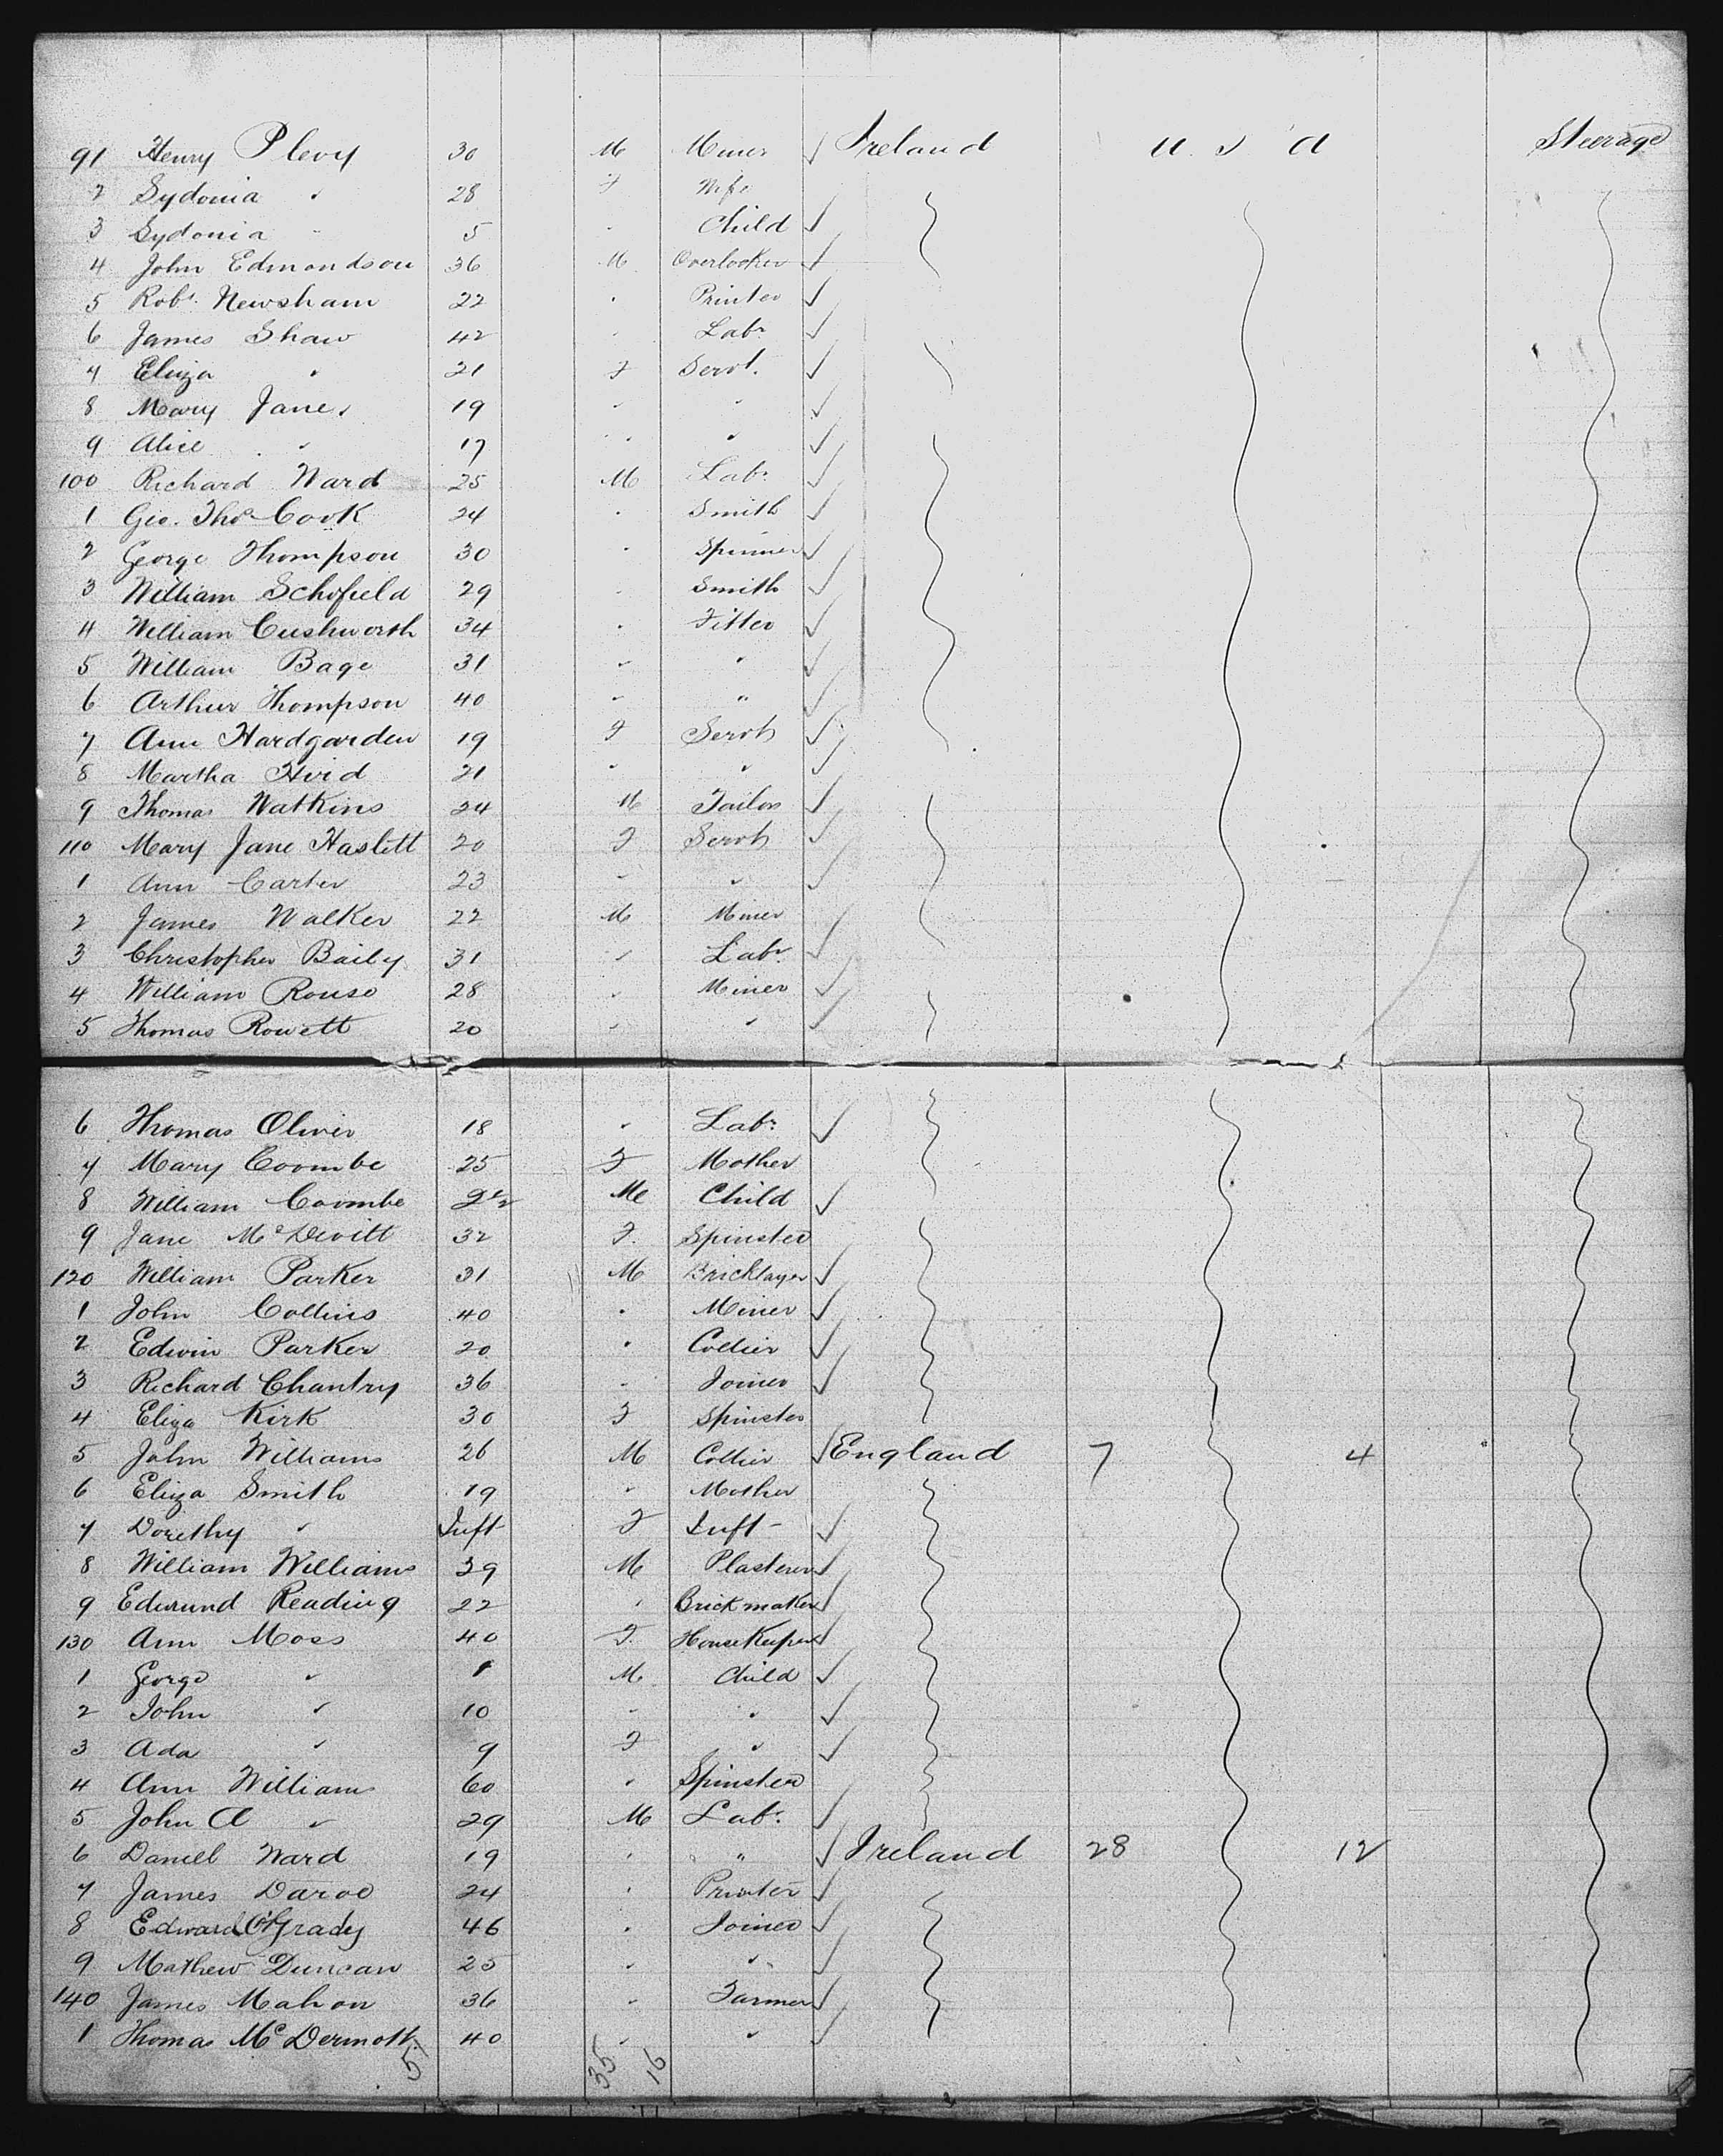 91 Henry Plevy 30 M Miner ✓ Ireland U. S A Steerage
2 Sydonia " 28 F Wife
3 Sydonia " 5 " Child ✓
4 John Edmondson 36 M Overlooker ✓
5 Robt. Newsham 22 " Printer ✓
6 James Shaw 42 " Labr ✓
7 Eliza " 21 F Servt. ✓
8 Mary Jane " 19 " " ✓
9 Alice " 17 " " ✓
100 Richard Ward 25 M Labr ✓
1 Geo. Thos Cook 24 " Smith ✓
2 George Thompson 30 " Spinner ✓
3 William Schofield 29 " Smith ✓
4 William Cushworth 34 " Fitter ✓
5 William Bage 31 " " ✓
6 Arthur Thompson 40 " " ✓
7 Ann Hardgarden 19 F Servt ✓
8 Martha Hird 21 " " ✓
9 Thomas Watkins 24 M Tailor ✓
110 Mary Jane Haslett 20 F Servt ✓
1 Ann Carter 23 " " ✓
2 James Walker 22 M Miner ✓
3 Christopher Baily 31 " Labr ✓
4 William Rouse 28 " Miner ✓
5 Thomas Rowett 20 " " ✓
6 Thomas Oliver 18 " Labr ✓
7 Mary Coombe 25 F Mother
8 William Coombe M Child ✓
9 Jane McDevitt 32 F. Spinster
120 William Parker 31 M Bricklayer ✓
1 John Collins 40 " Miner ✓
2 Edwin Parker 20 " Collier ✓
3 Richard Chantry 36 " Joiner ✓
4 Eliza Kirk 30 F Spinster
5 John Williams 26 M Collier ✓ England 7 4
6 Eliza Smith 19 " Mother
7 Dorethy " Inft F Inft ✓
8 William Williams 39 M Plasterer ✓
9 Edmund Reading 22 " Brickmaker ✓
130 Ann Moss 40 F. HouseKeeper ✓
1 George " M Child ✓
2 John " 10 " " ✓
3 Ada " 9 F " ✓
4 Ann Williams 60 " Spinster
5 John A " 29 M Labr ✓
6 Daniell Ward 19 " " ✓ Ireland 28 12
7 James Daroe 24 " Printer ✓
8 Edward O'Grady 46 " Joiner ✓
9 Mathew Duncan 25 " " ✓
140 James Mahon 36 " Farmer ✓
1 Thomas McDermott 40 " " ✓
51 35 16